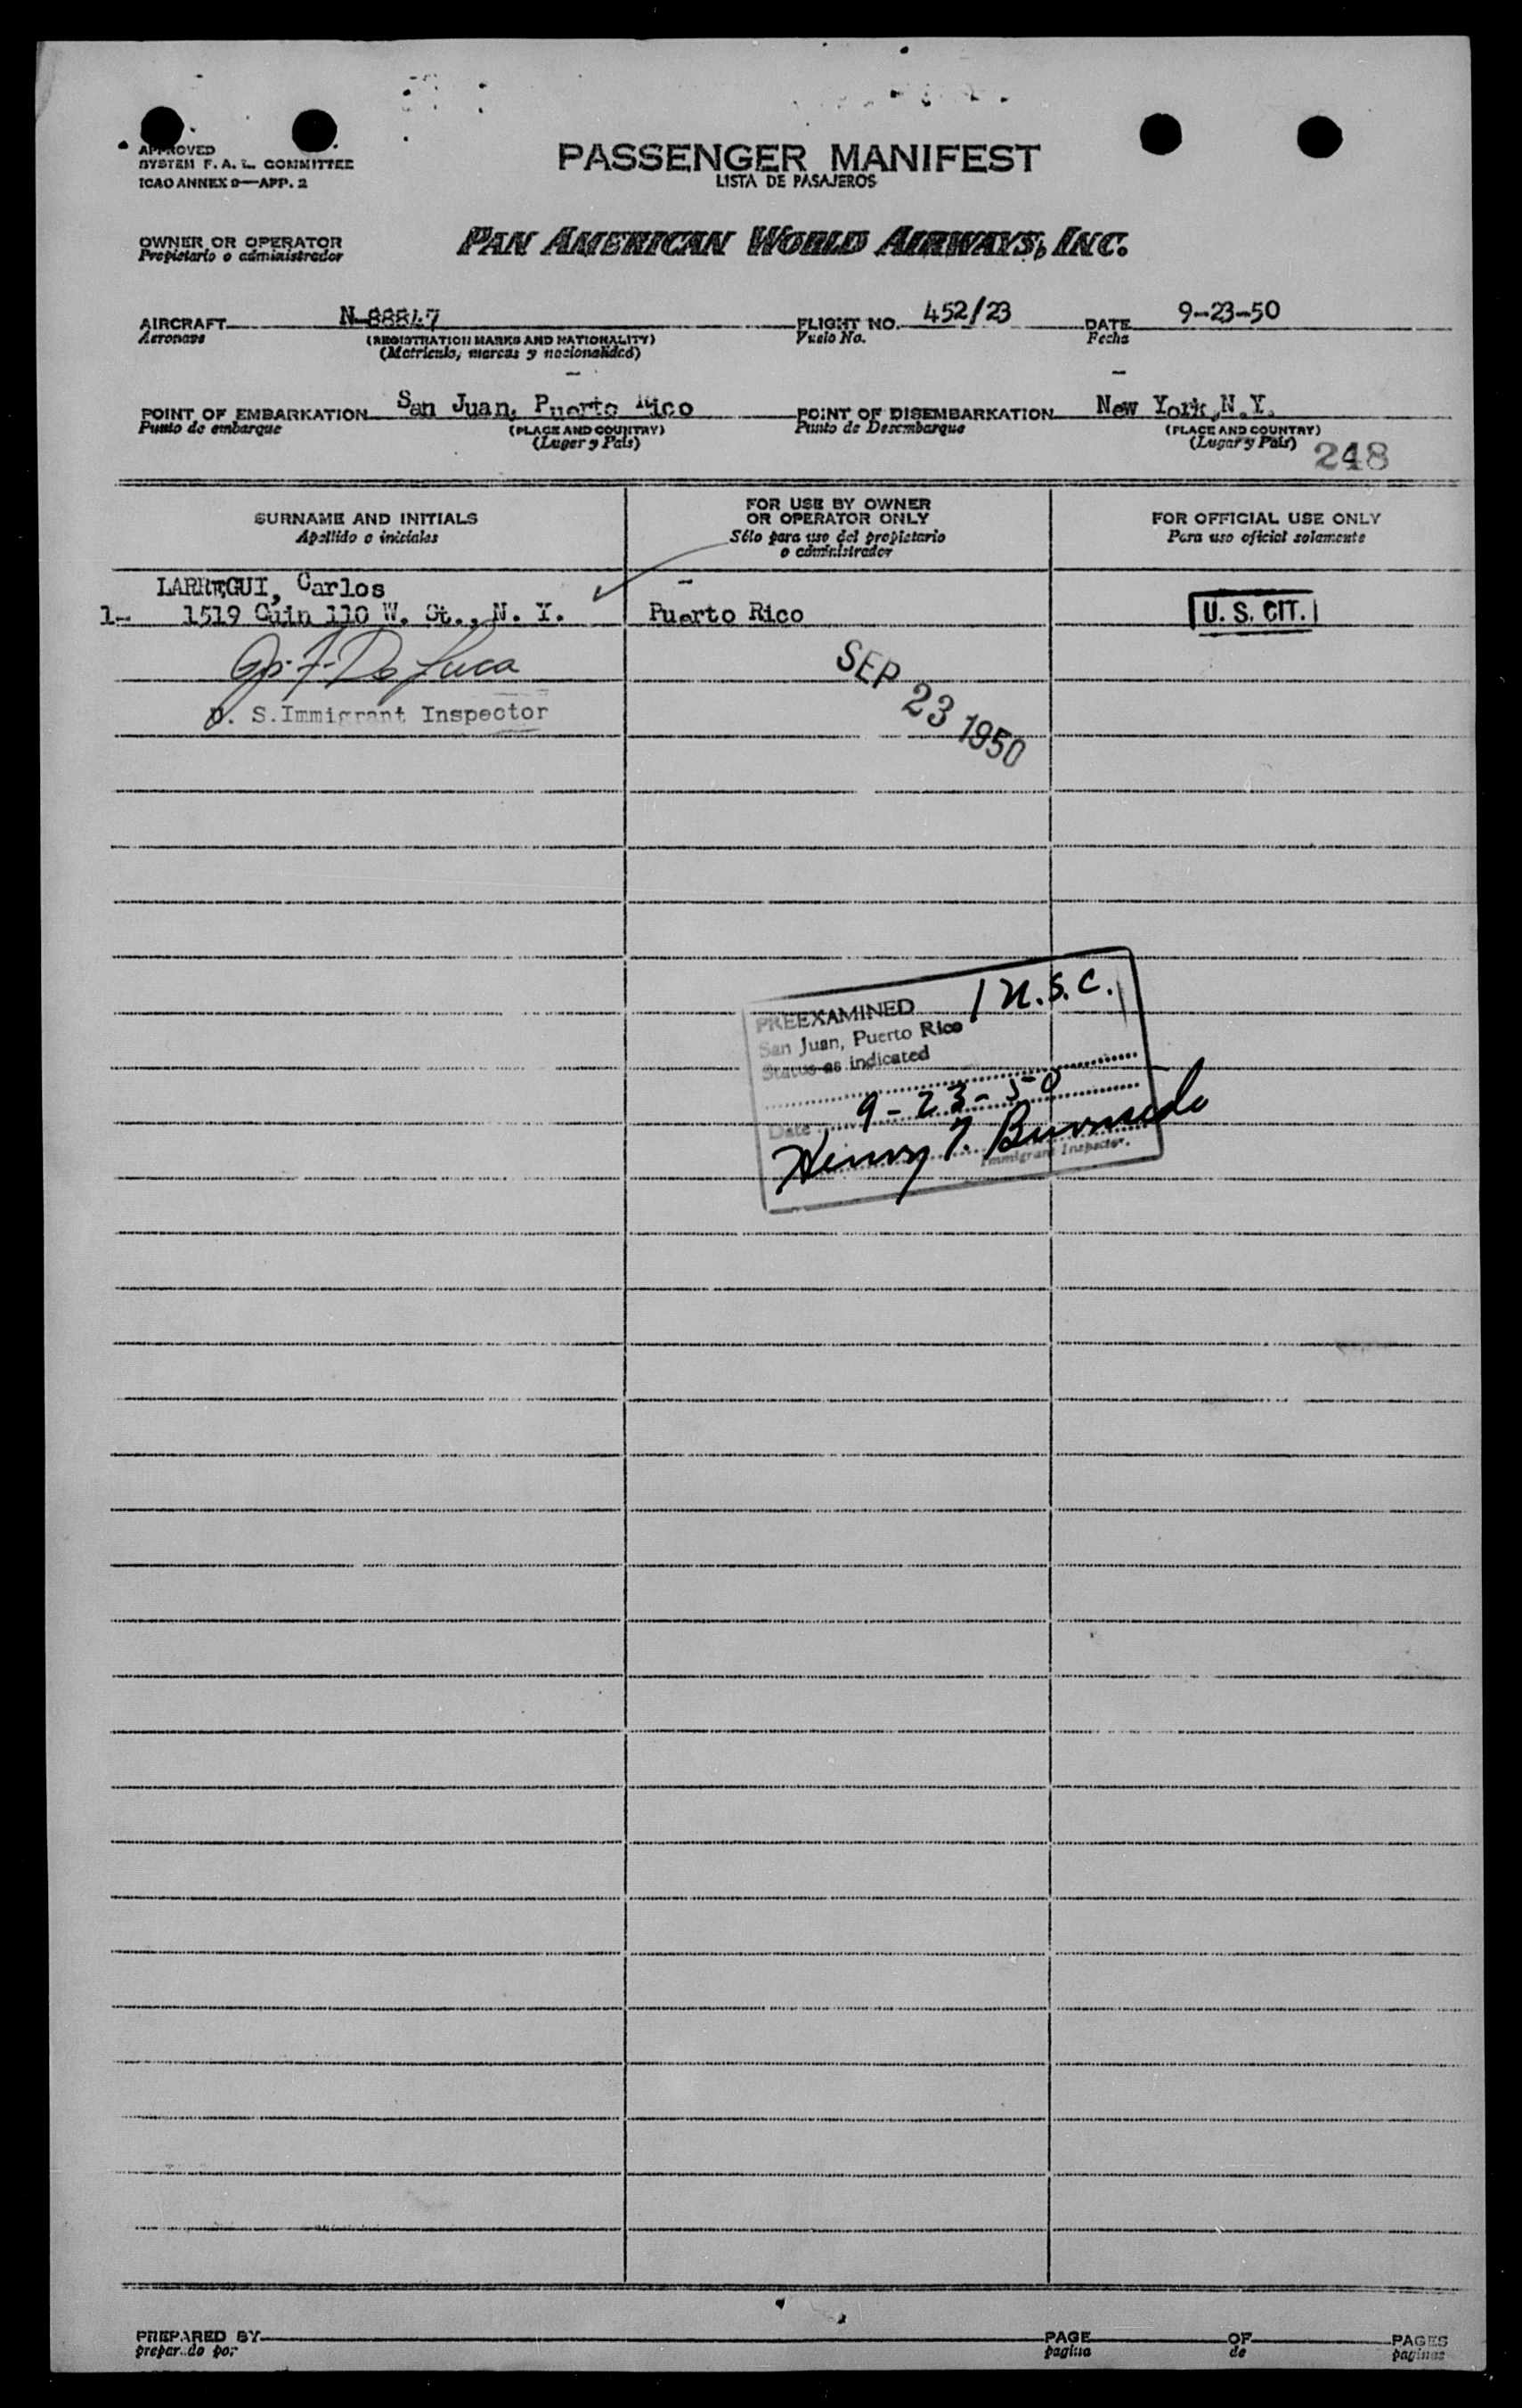 APPROVED
SYSTEM F. A. L. COMMITTEE
ICAO ANNEX 9—APP. 2
PASSENGER MANIFEST
LISTA DE PASAJEROS
OWNER OR OPERATOR
Propietario o administrador
PAN AMERICAN WORLD AIRWAYS, INC.
AIRCRAFT N-88847 FLIGHT NO. 452/23 DATE 9-23-50
Aeronave (REGISTRATION MARKS AND NATIONALITY) Vuelo No. Fecha
(Matrícula, marcas y nacionalidad)
POINT OF EMBARKATION San Juan, Puerto Rico POINT OF DISEMBARKATION New York, N.Y.
Punto de embarque (PLACE AND COUNTRY) Punto de Desembarque (PLACE AND COUNTRY)
(Lugar y País) (Lugar y País) 248
SURNAME AND INITIALS FOR USE BY OWNER OR OPERATOR ONLY FOR OFFICIAL USE ONLY
Apellido e iniciales Sólo para uso del propietario o administrador Para uso oficial solamente
LARREGUI, Carlos
1- 1519 110 W. St., N. Y. Puerto Rico U. S. CIT.
De Luca
U. S. Immigrant Inspector
SEP 23 1950
PREEXAMINED 1 U.S.C.
San Juan, Puerto Rico
Status as indicated
Date 9-23-50
Henry T. Burnside
Immigrant Inspector.
PREPARED BY PAGE OF PAGES
preparado por pagina de paginas